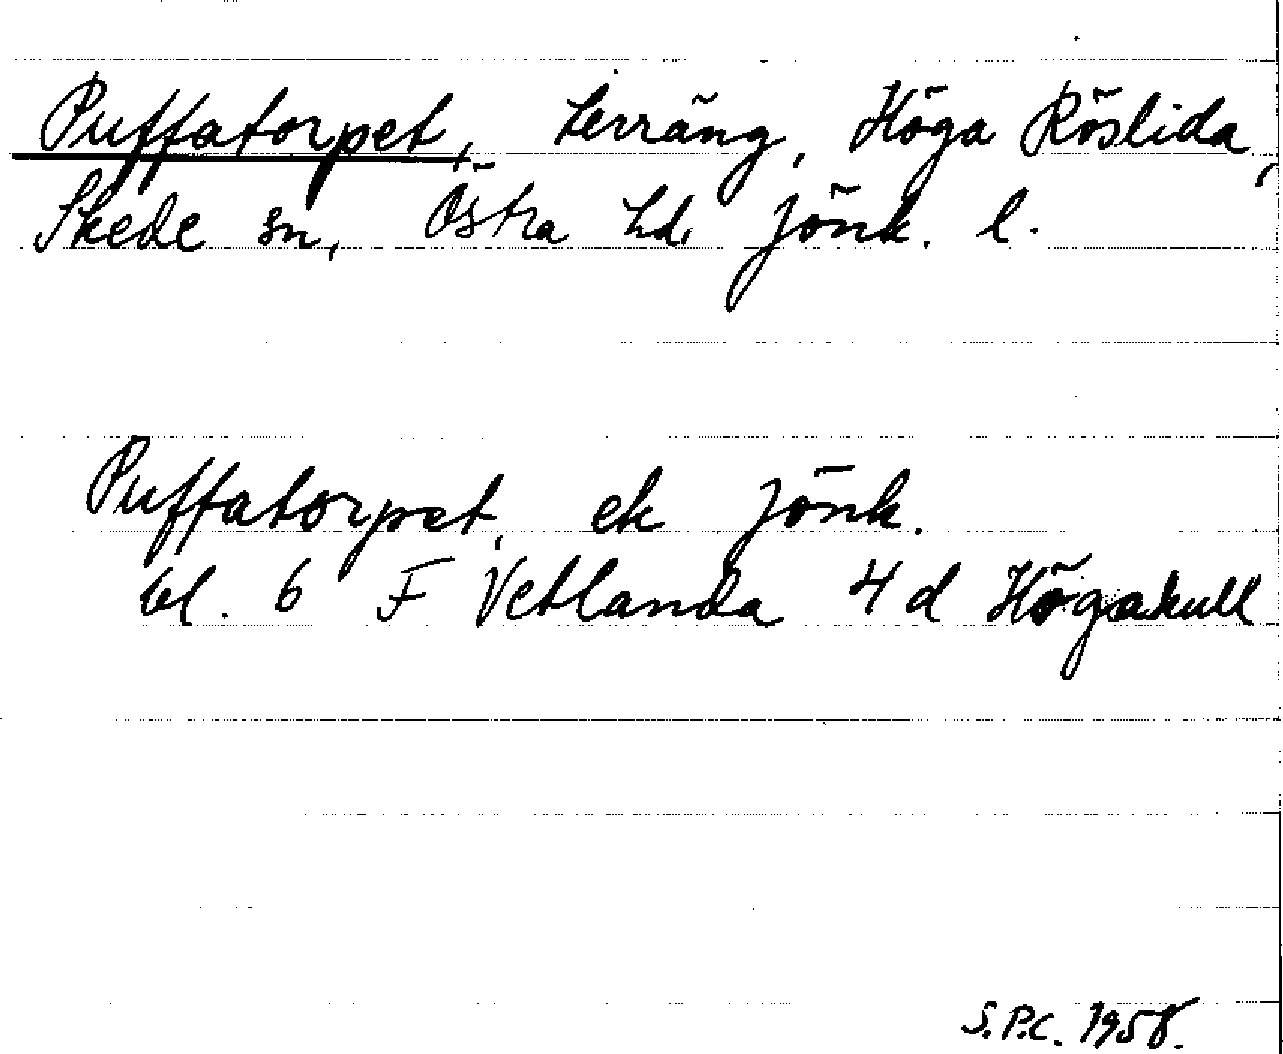 Puffatorpet, terräng, Höga Röslida,
Skede sn, Östra hd, Jönk. l.
Puffatorpet, ek Jönk.
bl. 6 F Vetlanda 4 d Högakull
S.P.C. 1958.